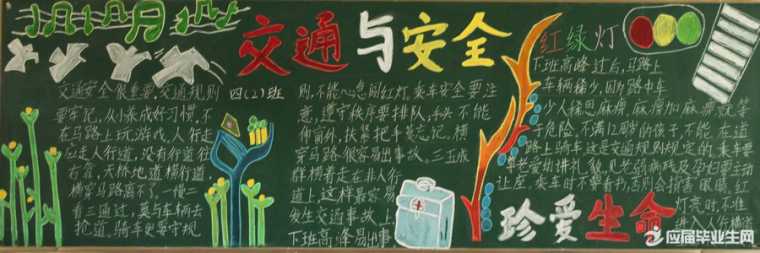 交通与安全
交通安全很重要,交通规则
要牢记,从小养成好习惯,不
在马路上玩游戏,人行走
应走人行道,没有行道往
右靠,天桥地道横行道,
横穿马路离不了,一慢二
看三通过,莫与车辆去
抢道,骑车更要守规
四(2)班
则,不能心急闯红灯,乘车安全要注
意,遵守秩序要排队,手头不能
伸窗外,扶紧把手莫忘记,横
穿马路很容易出事故,三五成
群横着走在非人行
道上,这样最容易
发生交通事故,上
下班高峰易出事
红绿灯
下班高峰过后,马路上
车辆稀少,因为路中车
少人稀思麻痹,麻痹加麻
于危险,不满12岁的孩子,不能在道
路上骑车这是交通规则规定的,乘车要
尊老爱幼讲礼貌,见老弱病残及孕妇要主动
让座,乘车时不要看书,否则会损害眼睛,红
灯亮时,不准
进入人行横道
珍爱生命
应届毕业生网